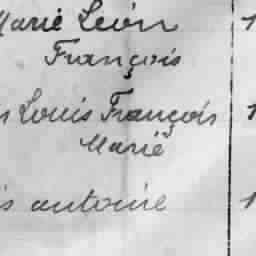 Marie Léon 1
François
s Louis François 1
Marie
is antoine 1